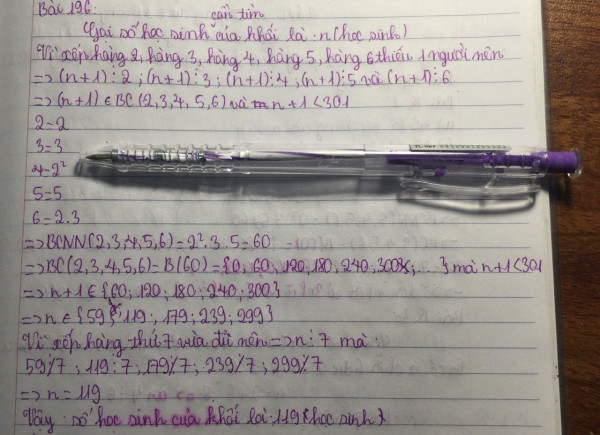 Bài 196:
cần tìm
Gọi số học sinh của khối là : n (học sinh)
Vì xếp hàng 2, hàng 3, hàng 4, hàng 5, hàng 6 thiếu 1 người nên
=> (n+1)⋮2 ; (n+1)⋮3 ; (n+1)⋮4 ; (n+1)⋮5 và (n+1)⋮6
=> (n+1) ∈ BC(2,3,4,5,6) và n+1<301
2=2
3=3
4=2²
5=5
6=2.3
=> BCNN(2,3,4,5,6)=2².3.5=60
=> BC(2,3,4,5,6)=B(60)={0; 60; 120; 180; 240; 300; ...} mà n+1<301
=> n+1 ∈ {60; 120; 180; 240; 300}
=> n ∈ {59; 119; 179; 239; 299}
Vì xếp hàng thứ 7 vừa đủ nên => n⋮7 mà:
59⋮̸7 ; 119⋮7 ; 179⋮̸7 ; 239⋮̸7 ; 299⋮̸7
=> n=119
Vậy : số học sinh của khối là : 119 (học sinh)